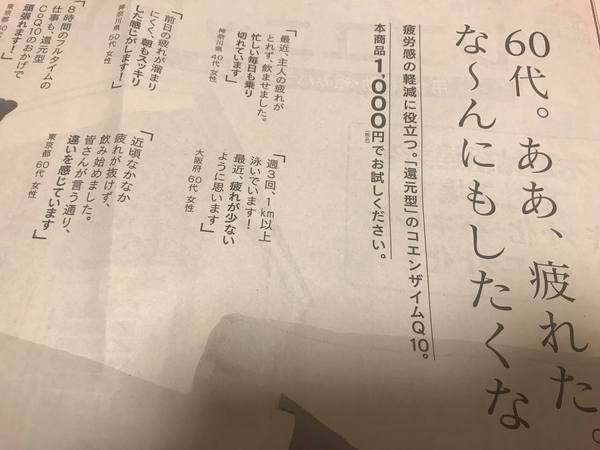 60代。ああ、疲れた。
な～んにもしたくな
疲労感の軽減に役立つ。「還元型」のコエンザイムQ10。
本商品1,000円(税込)でお試しください。
「最近、主人の疲れが
とれず、飲ませました。
忙しい毎日も乗り
切れています」
神奈川県 40代 女性
「前日の疲れが溜まり
にくく、朝もスッキリ
した感じがします!」
神奈川県 50代 女性
「8時間のフルタイムの
仕事も、還元型
CoQ10のおかげで
頑張れます!
東京都
「週3回、1km以上
泳いでいます!
最近、疲れが少ない
ように思います」
大阪府 60代 女性
「近頃なかなか
疲れが抜けず、
飲み始めました。
皆さんが言う通り、
違いを感じています」
東京都 60代 女性